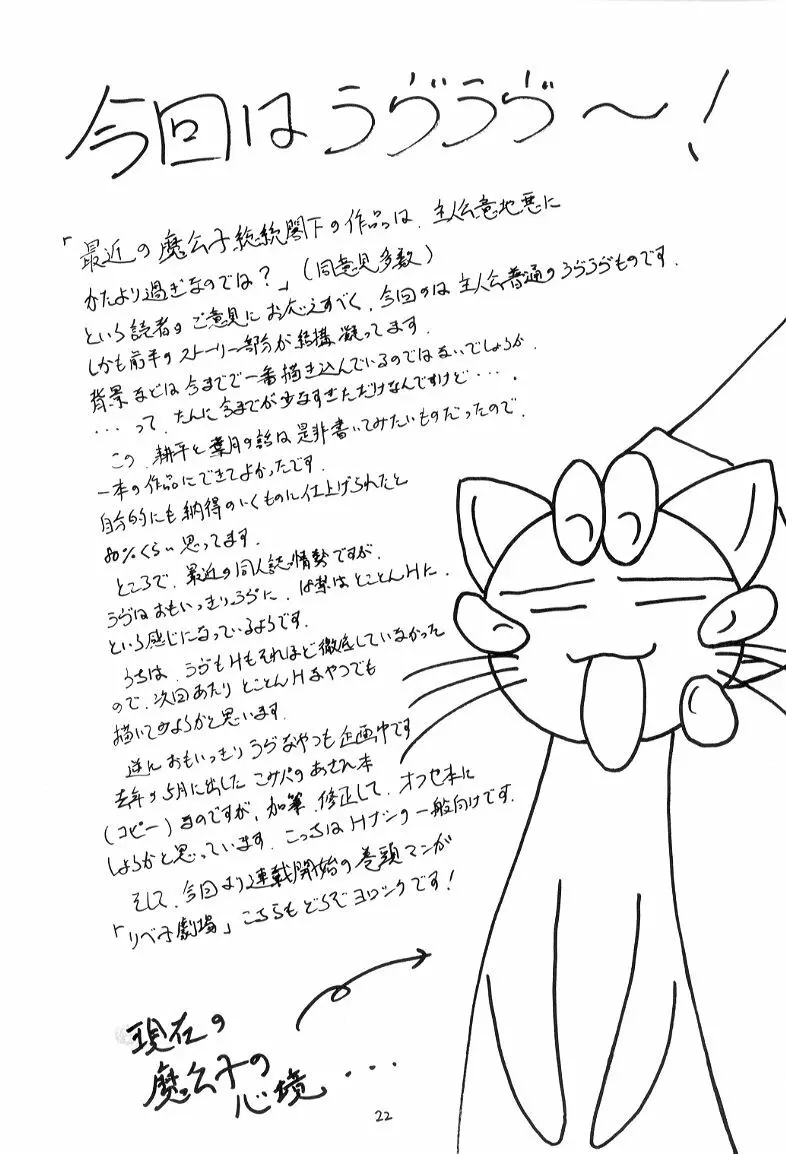 今回はうづうづ〜!
「最近の魔公子総統閣下の作品は、主人公意地悪に
かたより過ぎなのでは?」(同意見多数)
という読者のご意見にお応えすべく、今回のは主人公普通のうづうづものです.
しかも前半のストーリー部分が結構凝ってます.
背景などは今までで一番描き込んでいるのではないでしょうか.
・・・って、たんに今までが少なすぎただけなんですけど・・・.
この、耕平と葉月の話は是非書いてみたいものだったので、
一本の作品にできてよかったです.
自分的にも納得のいくものに仕上げられたと
80%くらい思ってます.
ところで、最近の同人誌情勢ですが、
うづはおもいっきりうづに、Hはとことん Hに、
という感じになっているようです.
うちは、うづもHもそれほど徹底していなかった
ので、次回あたりとことんHなやつでも
描いてみようかと思います.
逆におもいっきりうづなやつも企画中です
去年の5月に出したこみパのあさひ本
(コピー)なのですが、加筆、修正して、オフセ本に
しようかと思っています.こっちはHナシの一般向けです.
そして、今回より連載開始の巻頭マンガ
「リベ子劇場」こちらもどうぞヨロシクです!
現在の
魔公子の
心境・・・
22